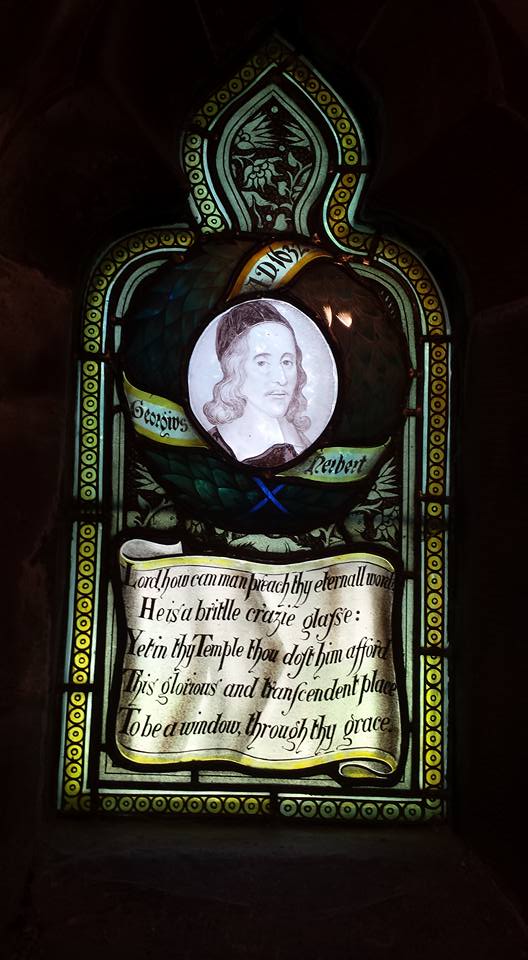 A.D. 1632
Georgius
Herbert
Lord how can man preach thy eternall word
He is a brittle crazie glaſse:
Yet in thy Temple thou doſt him afford
This glorious and tranſcendent place
To be a window, through thy grace.